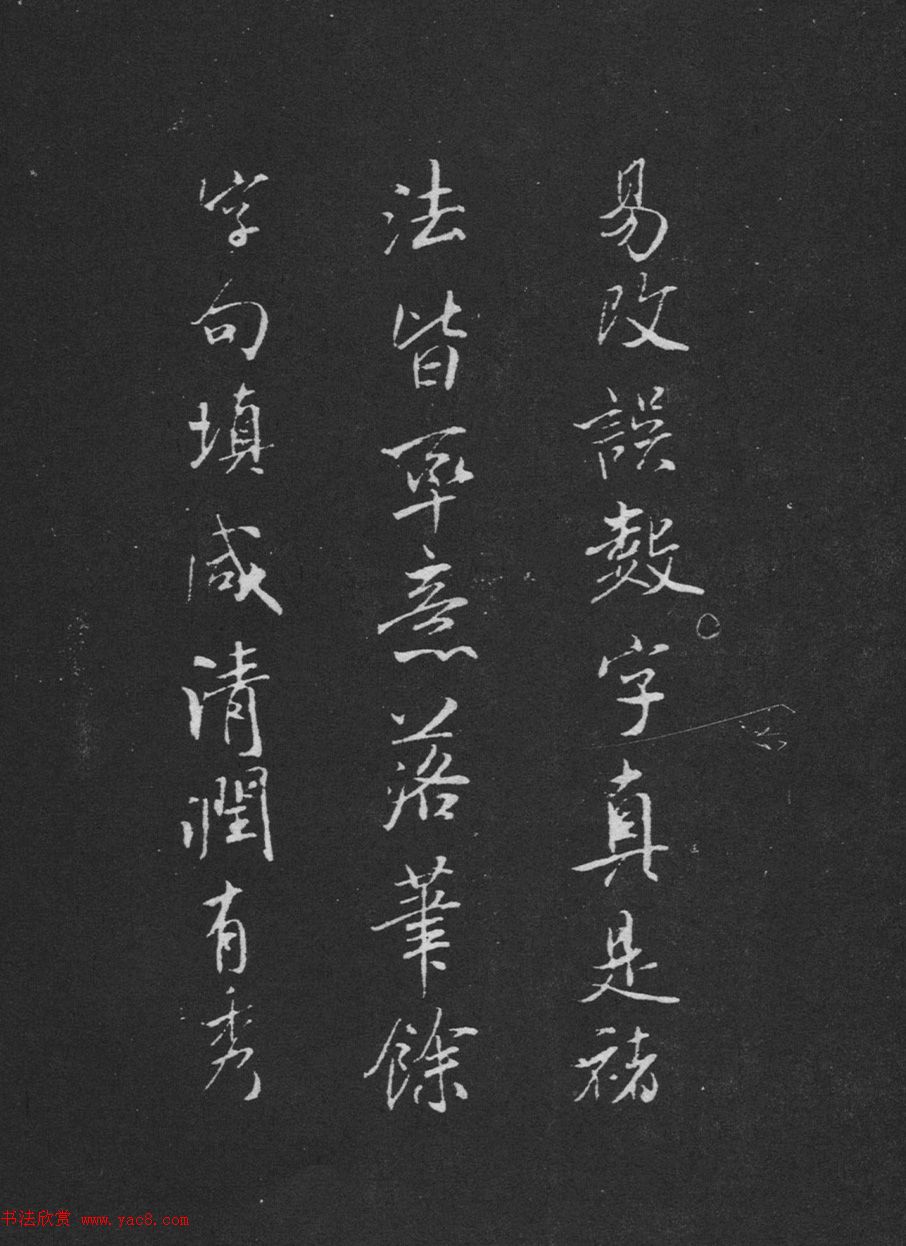 易改誤數字真是褚
法皆率意落筆餘
字句填咸清潤有秀
书法欣赏 www.yac8.com